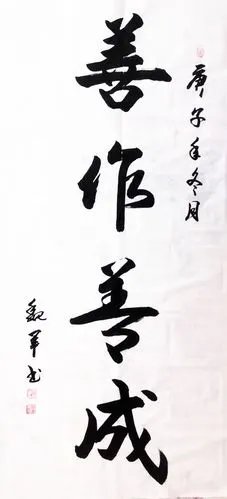 庚子年冬月
善作善成
魏军书